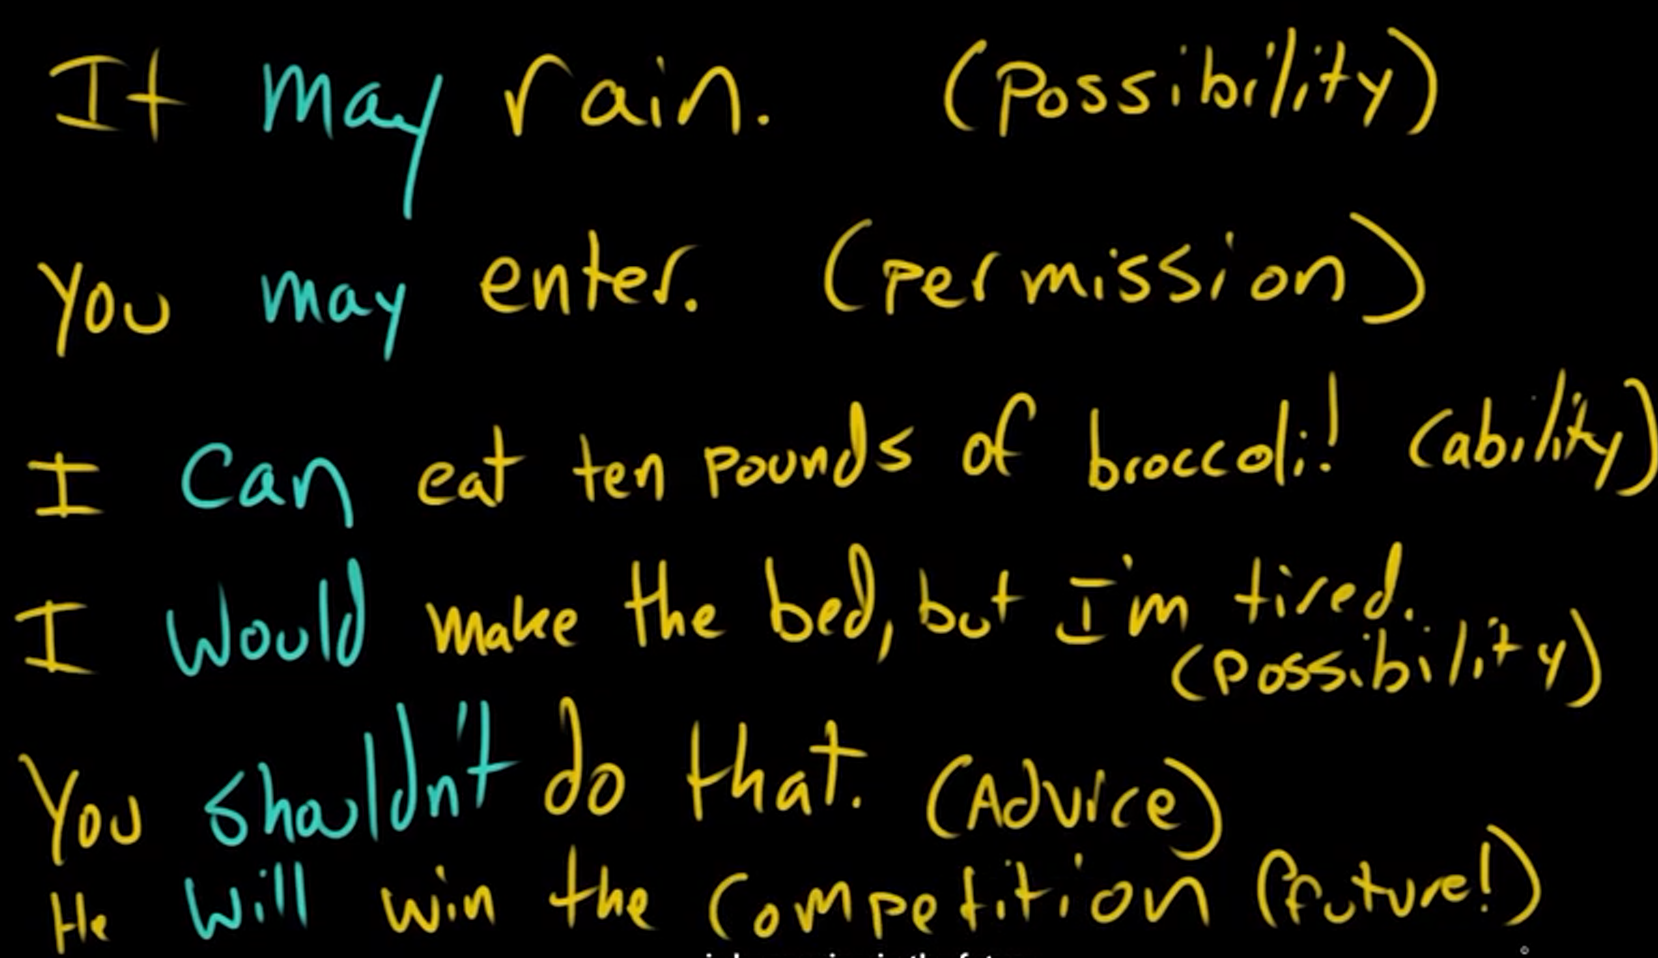 It may rain. (possibility)
You may enter. (permission)
I can eat ten pounds of broccoli! (ability)
I would make the bed, but I'm tired.
(possibility)
You shouldn't do that. (Advice)
He will win the competition (future!)